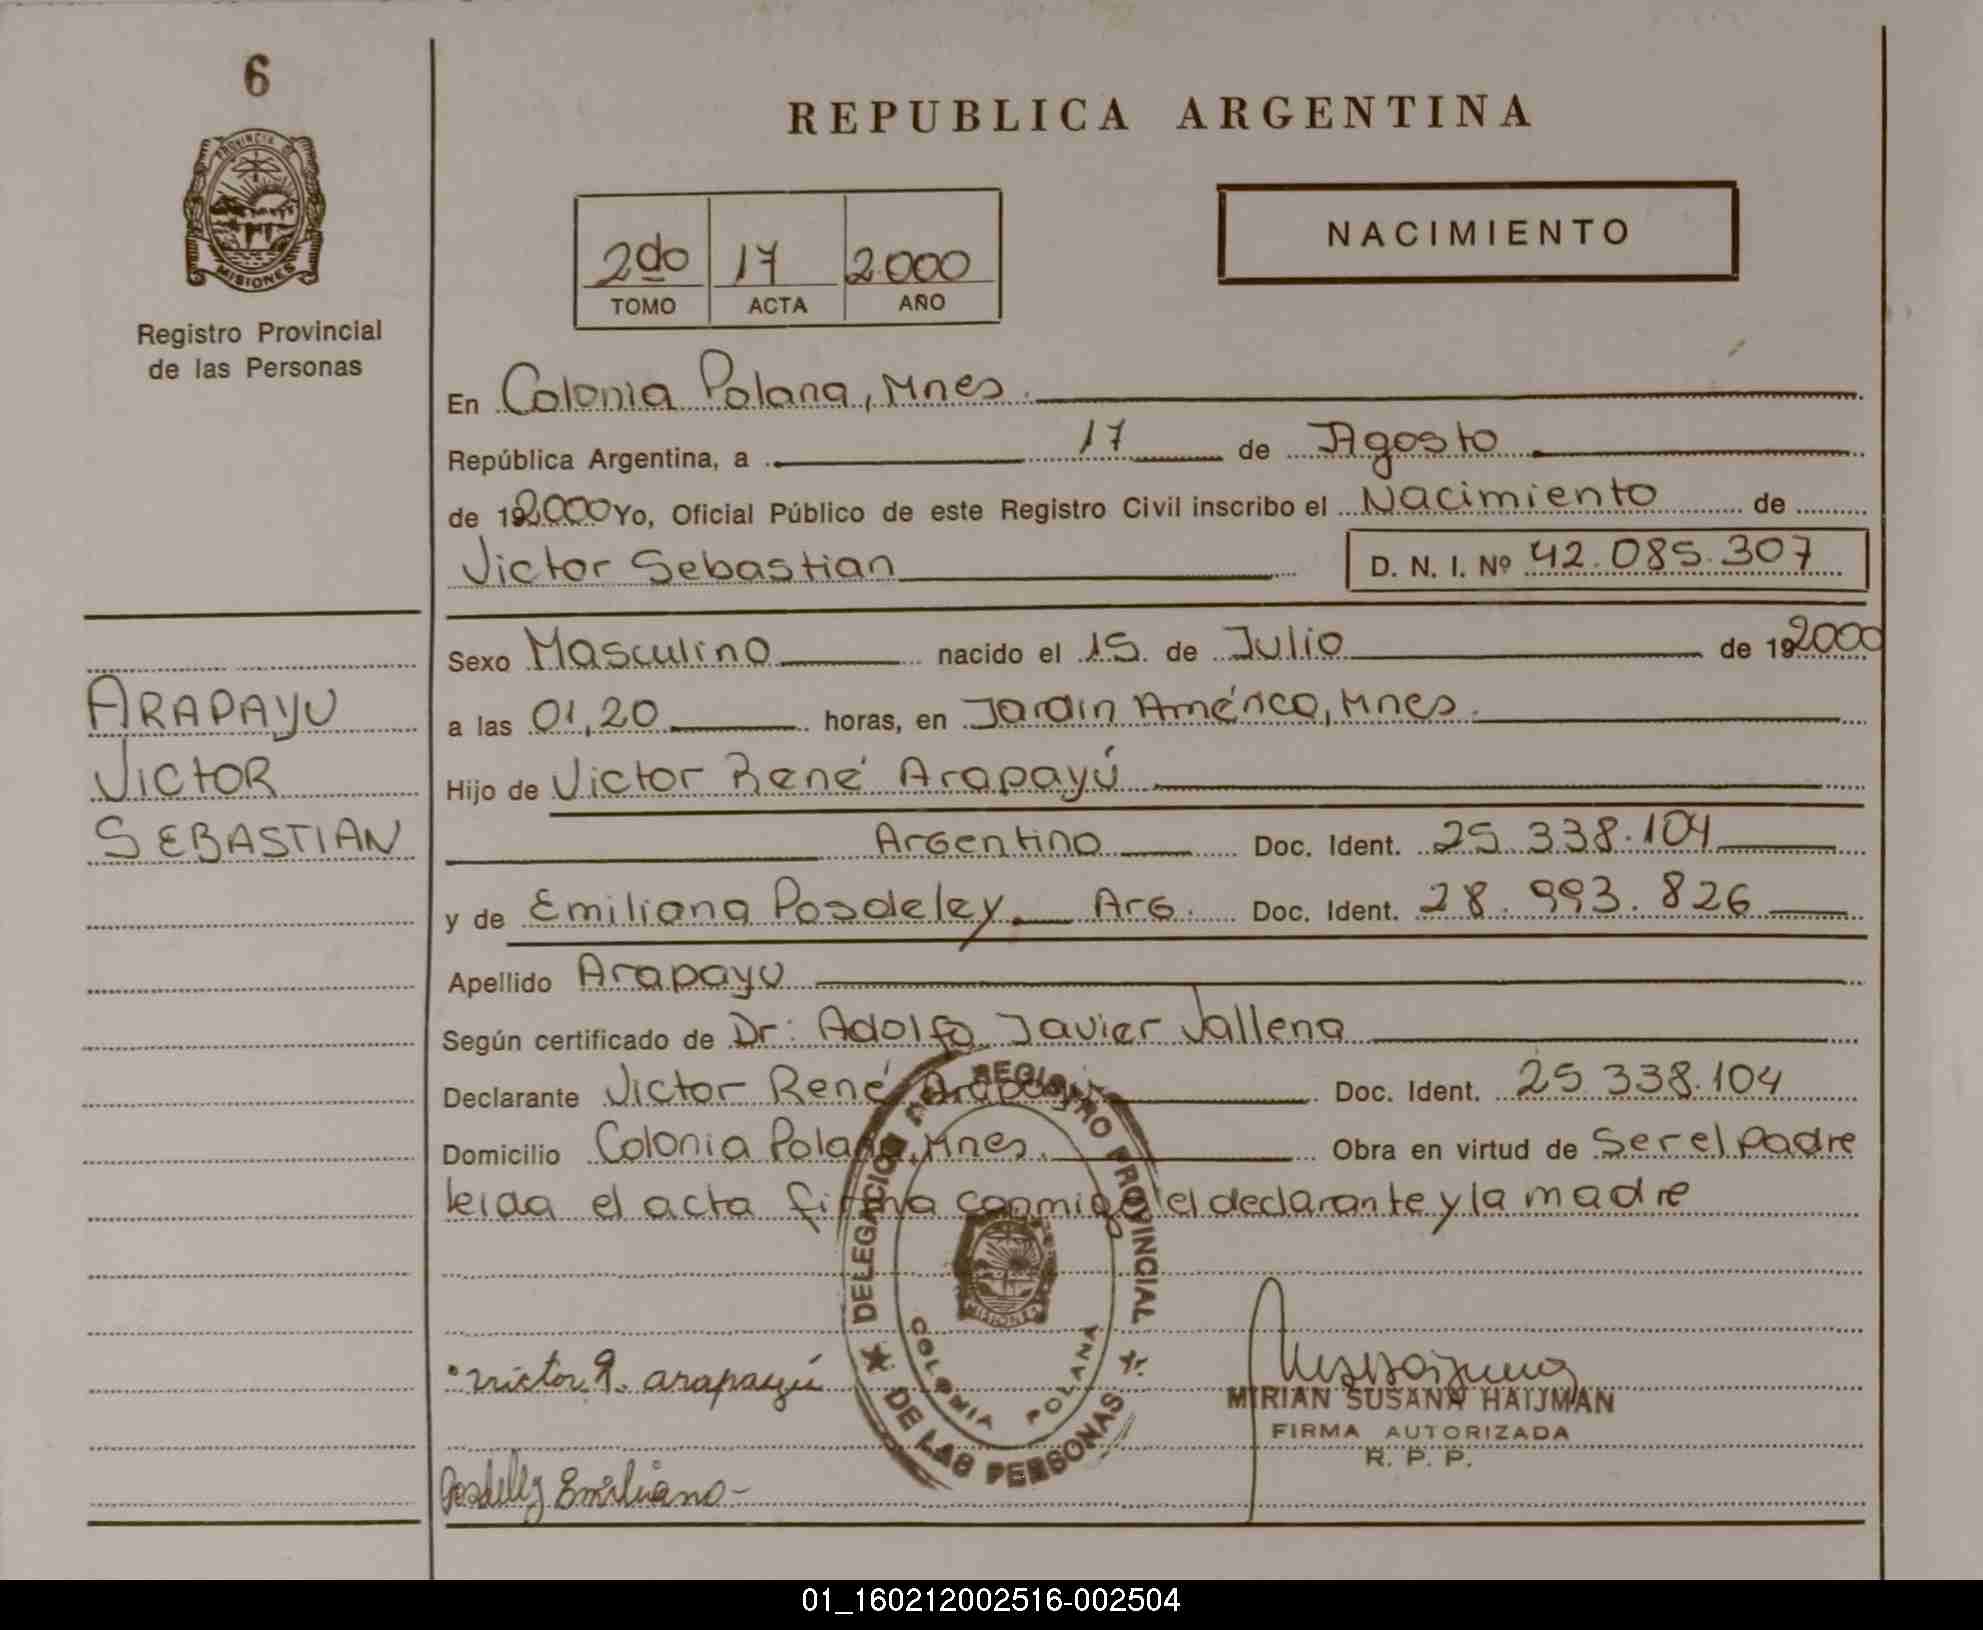 6
PROVINCIA DE
MISIONES
Registro Provincial
de las Personas
REPUBLICA ARGENTINA
NACIMIENTO
2do 17 2.000
TOMO ACTA AÑO
En Colonia Polana, Mnes.
República Argentina, a 17 de Agosto
de 192000 Yo, Oficial Público de este Registro Civil inscribo el Nacimiento de
Victor Sebastian D. N. I. Nº 42.085.307
Sexo Masculino nacido el 15 de Julio de 192000
a las 01,20 horas, en Jardin América, Mnes.
Hijo de Victor René Arapayú
Argentino Doc. Ident. 25.338.104
y de Emiliana Posdeley Arg. Doc. Ident. 28.993.826
Apellido Arapayu
Según certificado de Dr: Adolfo Javier Vallena
Declarante Victor René Arapayú Doc. Ident. 25.338.104
Domicilio Colonia Polana, Mnes. Obra en virtud de Ser el Padre
leida el acta firma conmigo el declarante y la madre
ARAPAYU
VICTOR
SEBASTIAN
DELEGACION DEL REGISTRO PROVINCIAL
DE LAS PERSONAS
COLONIA POLANA
MISIONES
Victor R. arapayú
MIRIAN SUSANA HAIJMAN
FIRMA AUTORIZADA
R. P. P.
Emiliano
01_160212002516-002504